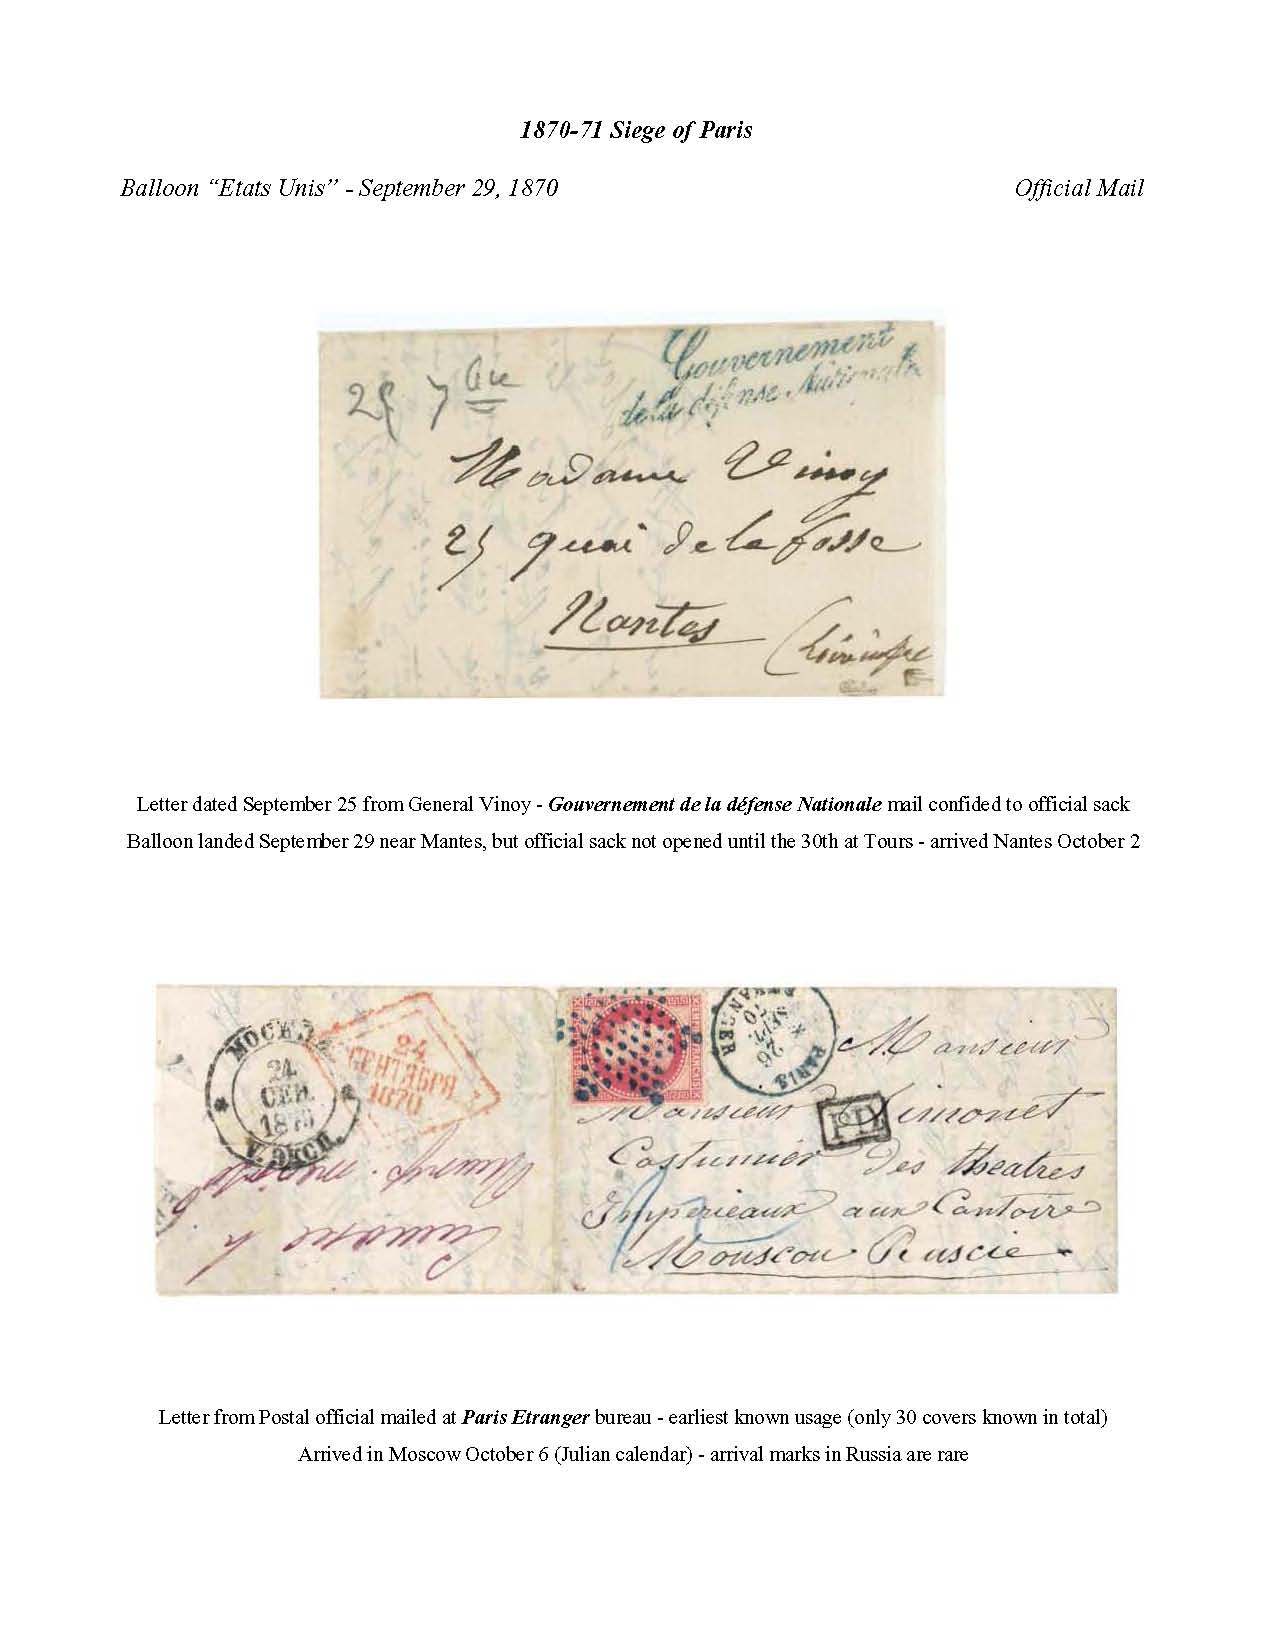 1870-71 Siege of Paris
Balloon “Etats Unis” - September 29, 1870 Official Mail
Gouvernement
de la défense Nationale
25 7bre
Madame Vinoy
25 quai de la fosse
Nantes
Letter dated September 25 from General Vinoy - Gouvernement de la défense Nationale mail confided to official sack
Balloon landed September 29 near Mantes, but official sack not opened until the 30th at Tours - arrived Nantes October 2
МОСКВА
24
СЕН.
1870
24
СЕНТЯБРЯ
1870
PARIS
ETRANGER
26
SEPT.
70
Monsieur
Monsieur Limonet
PD
Costumier des theatres
Imperieaux aux Cantoire
Mouscou Ruscie
Letter from Postal official mailed at Paris Etranger bureau - earliest known usage (only 30 covers known in total)
Arrived in Moscow October 6 (Julian calendar) - arrival marks in Russia are rare